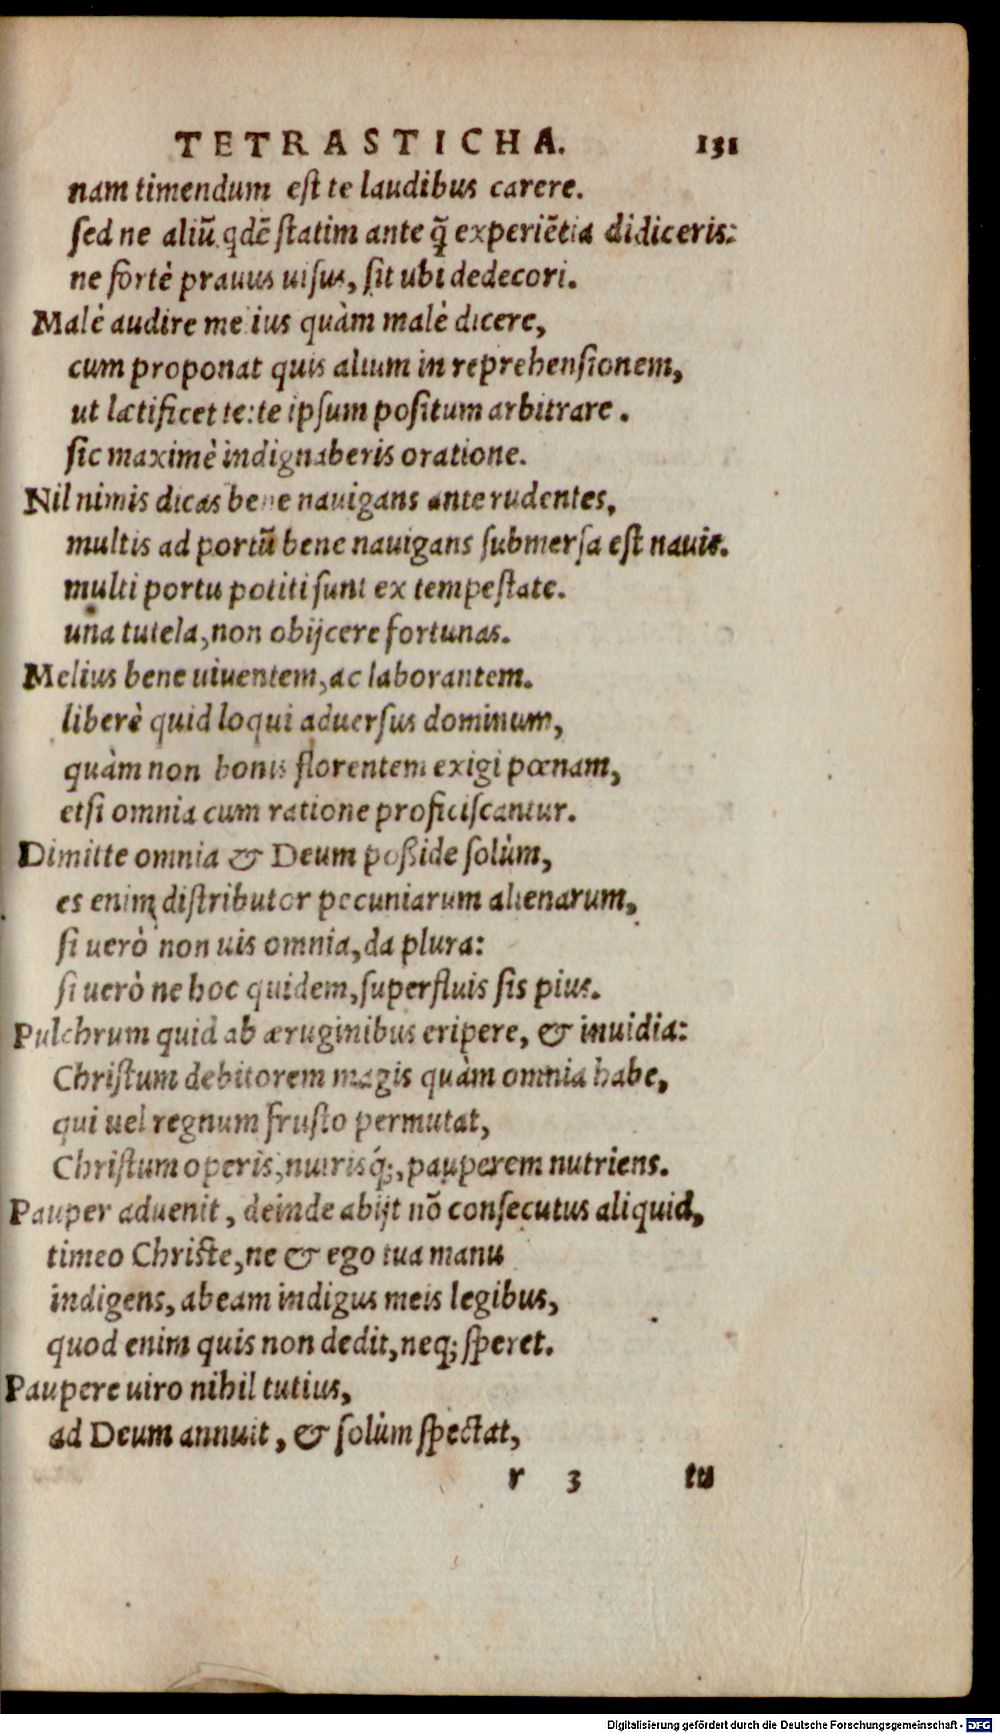 TETRASTICHA. 131
nam timendum est te laudibus carere.
sed ne aliũ qdẽ statim ante q̃ experiẽtia didiceris:
ne fortè prauus uisus, sit ubi dedecori.
Malè audire melius quàm malè dicere,
cum proponat quis alium in reprehensionem,
ut lætificet te: te ipsum positum arbitrare.
sic maximè indignaberis oratione.
Nil nimis dicas bene nauigans ante rudentes,
multis ad portũ bene nauigans submersa est nauis.
multi portu potiti sunt ex tempestate.
una tutela, non obijcere fortunas.
Melius bene uiuentem, ac laborantem.
liberè quid loqui aduersus dominum,
quàm non bonis florentem exigi pœnam,
etsi omnia cum ratione proficiscantur.
Dimitte omnia & Deum poßide solùm,
es enim distributor pecuniarum alienarum,
si uerò non uis omnia, da plura:
si uerò ne hoc quidem, superfluis sis pius.
Pulchrum quid ab æruginibus eripere, & inuidia:
Christum debitorem magis quàm omnia habe,
qui uel regnum frusto permutat,
Christum operis, nutrisq́;, pauperem nutriens.
Pauper aduenit, deinde abijt nõ consecutus aliquid,
timeo Christe, ne & ego tua manu
indigens, abeam indigus meis legibus,
quod enim quis non dedit, neq; speret.
Paupere uiro nihil tutius,
ad Deum annuit, & solùm spectat,
r 3 tu
Digitalisierung gefördert durch die Deutsche Forschungsgemeinschaft - DFG